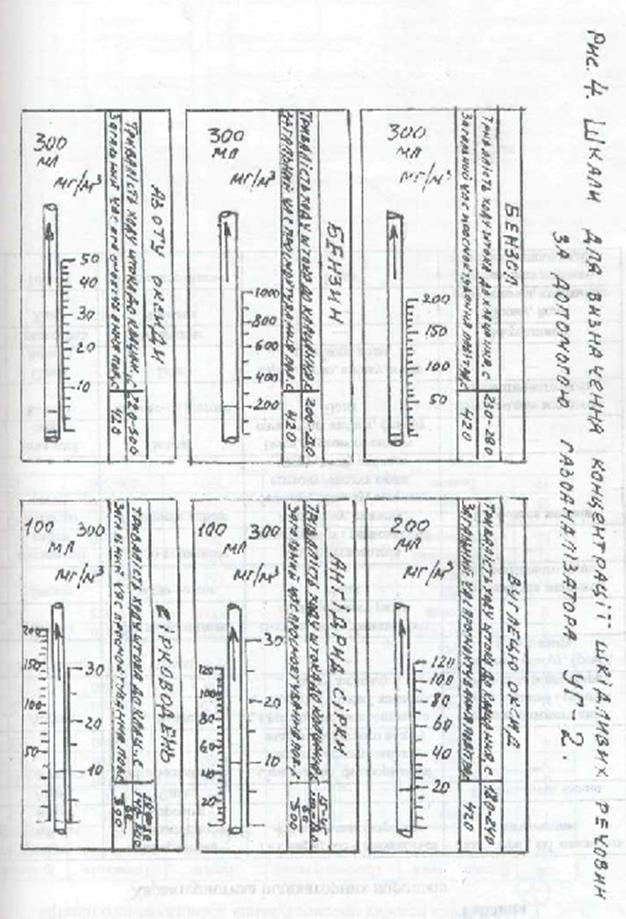 Рис. 4. Шкали для визначення концентрації шкідливих речовин
за допомогою газоаналізатора УГ-2.
БЕНЗОЛ
Тривалість ходу штока до клацання, с 220-260
Загальний час просмоктування повітря, с 420
300
мл
мг/м³
200
150
100
50
БЕНЗИН
Тривалість ходу штока до клацання, с
Загальний час просмоктування пов. с 420
300
мл
мг/м³
1000
800
600
400
200
АЗОТУ ОКСИДИ
Тривалість ходу штока до клацан. с
Загальний час просмоктування пов. с 420
300
мл
мг/м³
50
40
30
20
10
ВУГЛЕЦЮ ОКСИД
Тривалість ходу штока до клацання, с 180-240
Загальний час просмоктування повітря 420
200
мл
мг/м³
120
100
80
60
40
20
АНГІДРИД СІРКИ
Тривалість ходу штока до клацання с
Загальний час просмоктування пов. 300
100 300
мл
мг/м³
120
100
80
60
40
20
30
20
10
СІРКОВОДЕНЬ
Тривалість ходу штока до клац. с
Загальний час просмоктування пов. с 300
100 300
мл
мг/м³
200
150
100
50
30
20
10